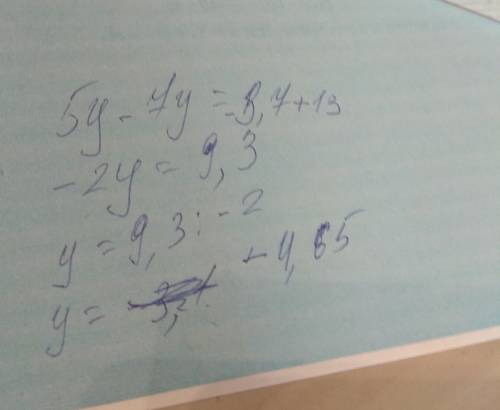 5y - 7y = -3,7+13
-2y = 9,3
y = 9,3 : -2
y = -4,65